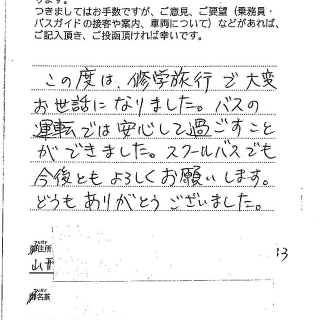 つきましてはお手数ですが、ご意見、ご要望（乗務員・
バスガイドの接客や案内、車両について）などがあれば、
ご記入頂き、ご投函頂ければ幸いです。
この度は、修学旅行で大変
お世話になりました。バスの
運転では安心して過ごすこと
ができました。スクールバスでも
今後ともよろしくお願いします。
どうもありがとうございました。
御住所
山形
33
御名前